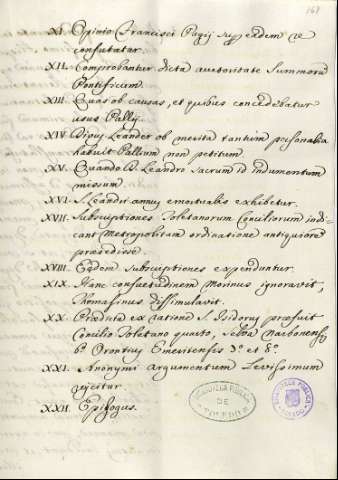 161
XI. Opinio Francisci Pagij super eadem re
confutatur.
XII. Comprobantur dicta auctoritate Summorũ
Pontificum.
XIII. Quas ob causas, et quibus concedebatur
usus Pallij.
XIV. Leander ob merita tantùm personalia
habuit Pallium non petitum.
XV. Quando D. Leandro Sacrum id indumentum
missum.
XVI. S. Leandri annus emortualis exhibetur.
XVII. Subscriptiones Toletanorum Conciliorum indi-
cant Metropolitam ordinatione antiquiorẽ
praesedisse.
XVIII. Eaedem Subscriptiones expenduntur.
XIX. Hanc consuetudinem Morinus ignoravit,
Thomasinus dissimulavit.
XX. Praedicta ex ratione S. Isidorus praefuit
Concilio Toletano quarto, Selva Narbonensis
6º Orontius Emeritensis 7º et 8º.
XXI. Anonymi argumentum Levissimum
rejicitur
XXII. Epilogus.
BIBLIOTECA PUBLICA
DE
TOLEDO
BIBLIOTECA PUBLICA
TOLEDO